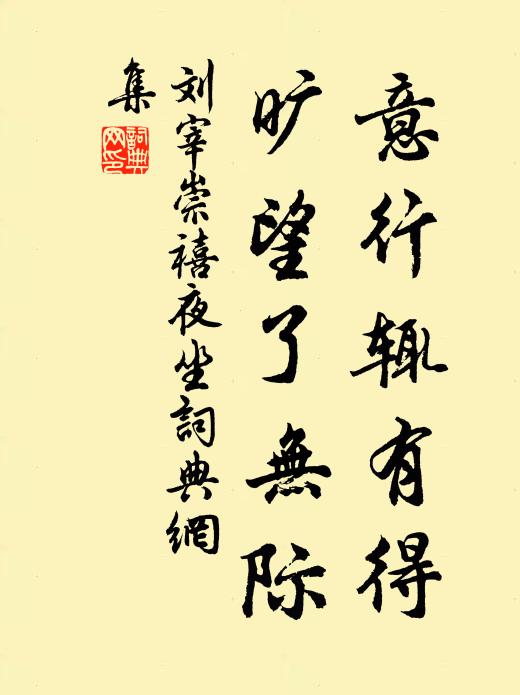 意行辄有得
旷望了無际
刘宰崇禧夜坐詞典網
集
詞典
网印